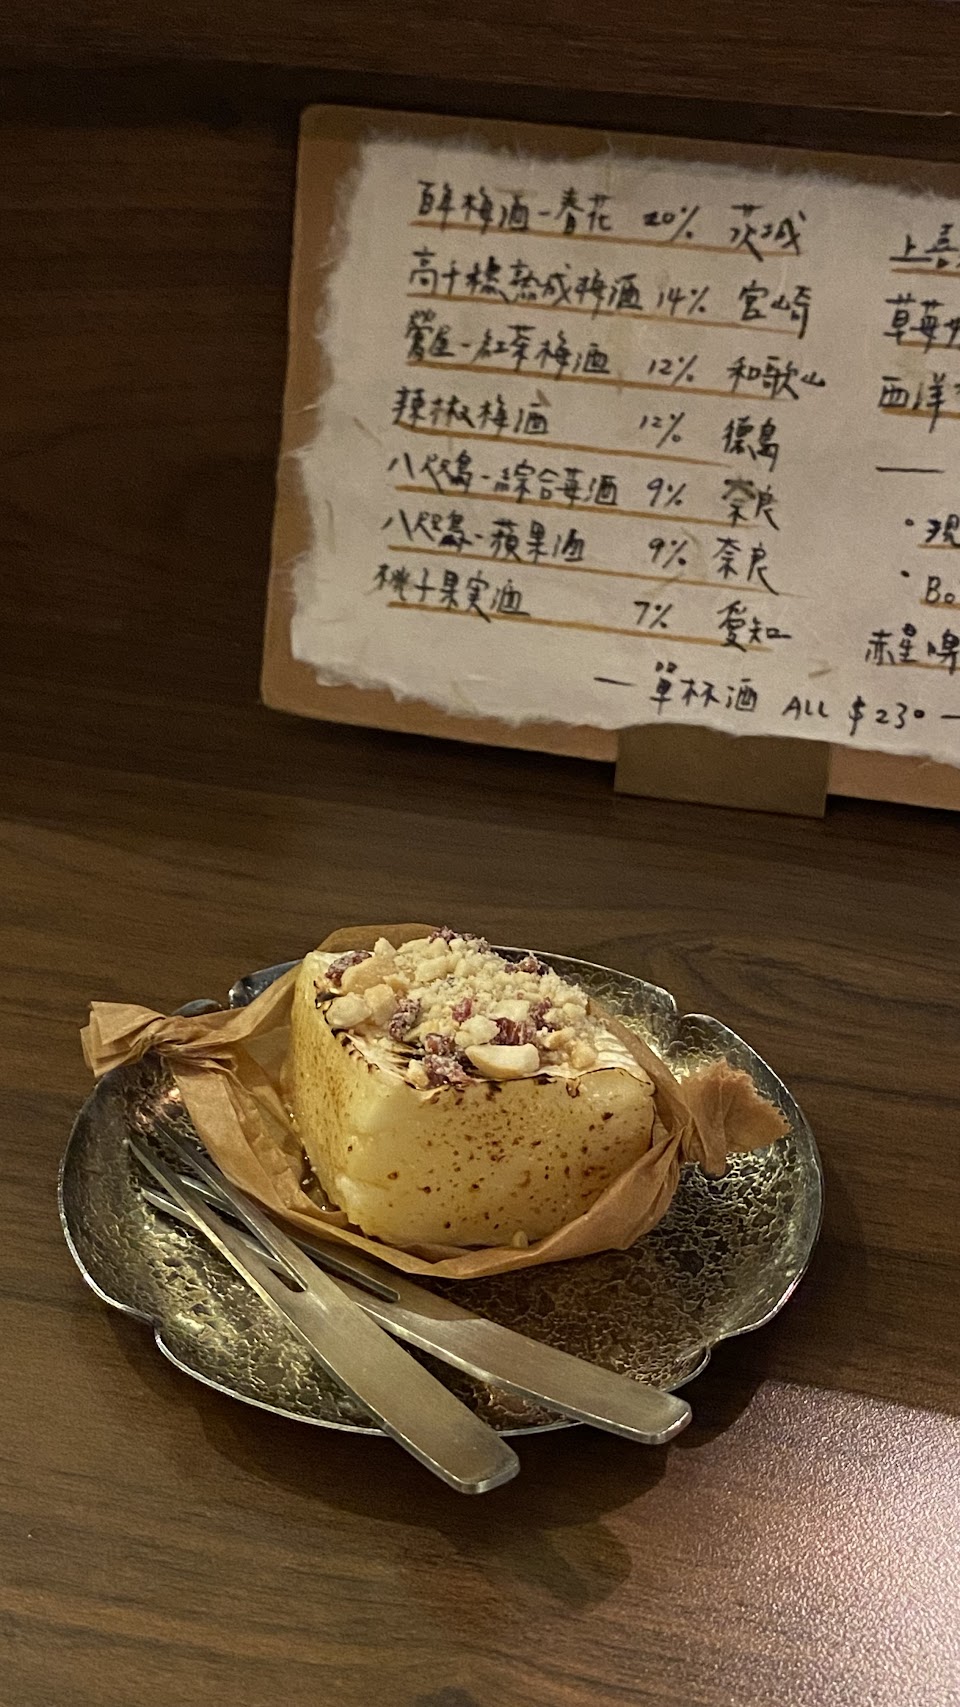 百年梅酒-春花 20% 茨城
高千穗熟成梅酒 14% 宮崎
鶯屋-紅茶梅酒 12% 和歌山
辣椒梅酒 12% 德島
八咫烏-綜合莓酒 9% 奈良
八咫烏-蘋果酒 9% 奈良
桃子果実酒 7% 愛知
— 單杯酒 ALL $230 —
上喜
草莓
西洋
—
• 現
• Bo
赤星啤